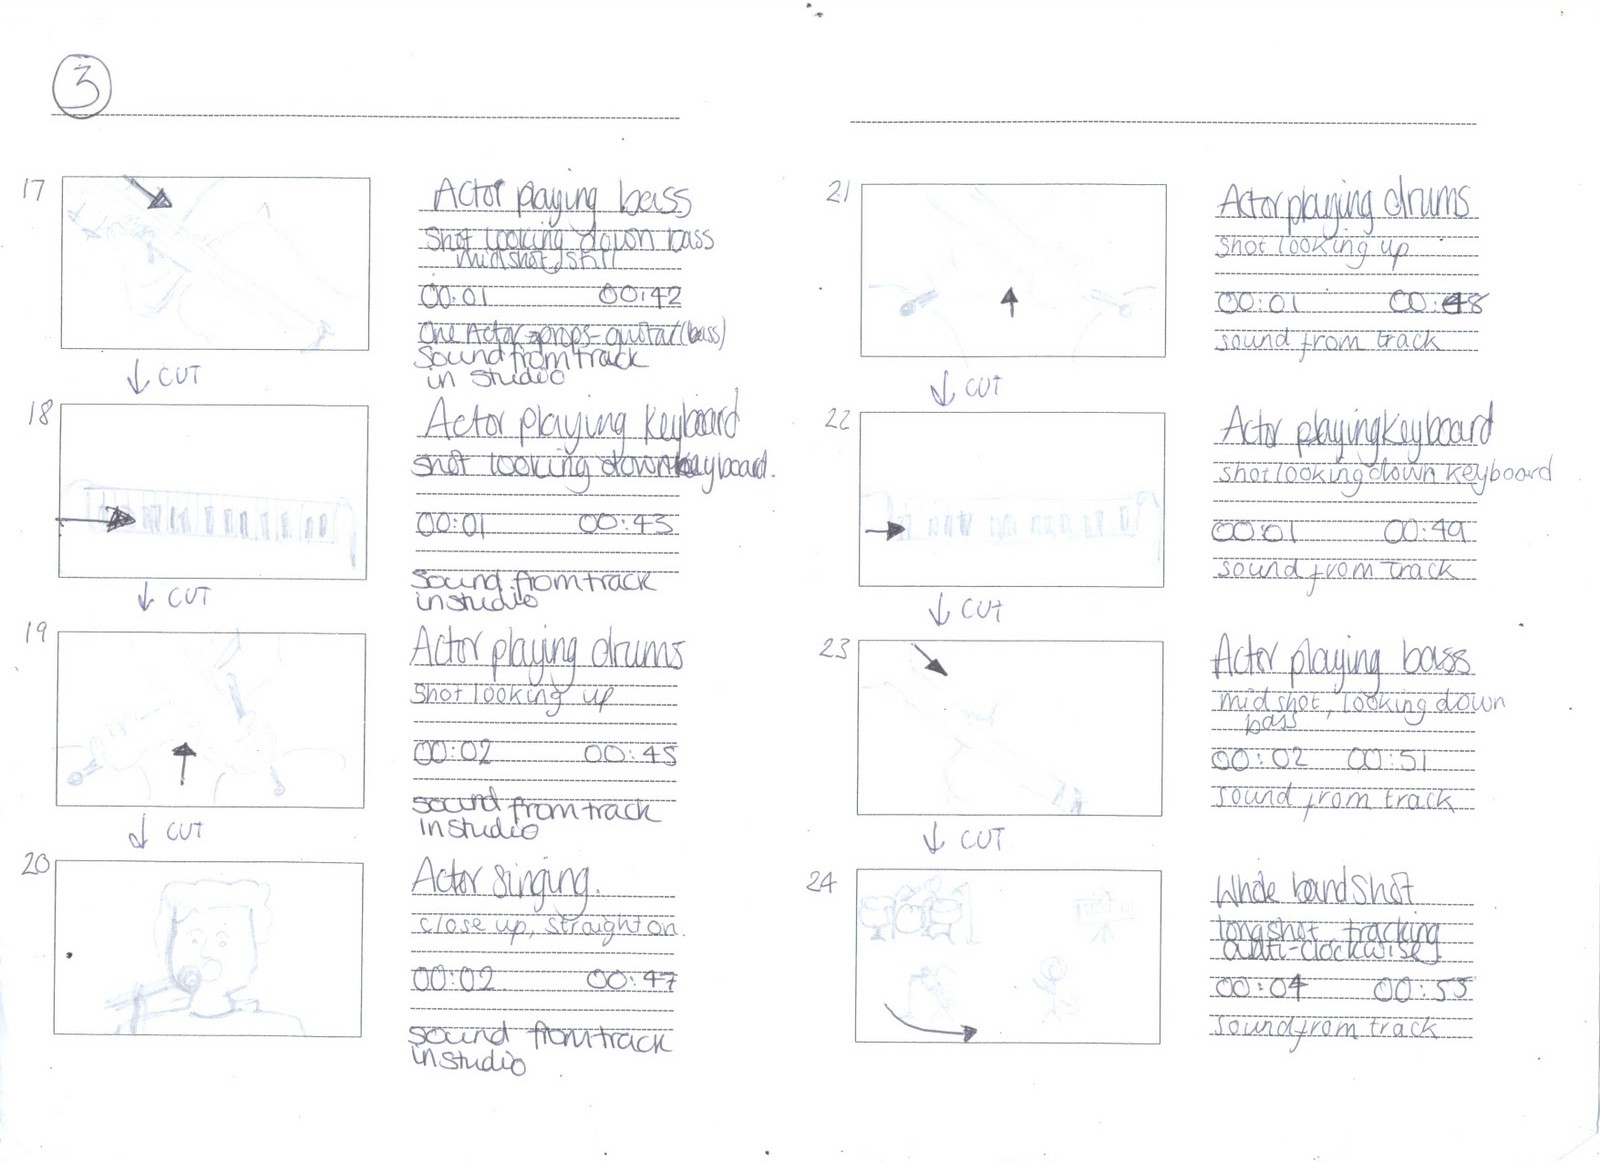 3
17
Actor playing bass
Shot looking down bass
midshot, still
00:01 00:42
One Actor-props-guitar(bass)
Sound from track
in studio
↓ CUT
18
Actor playing Keyboard
shot looking down keyboard.
00:01 00:43
Sound from track
in studio
↓ CUT
19
Actor playing drums
Shot looking up
00:02 00:45
sound from track
in studio
↓ CUT
20
Actor singing.
close up, straight on.
00:02 00:47
sound from track
in studio
21
Actor playing drums
shot looking up
00:01 00:48
sound from track
↓ CUT
22
Actor playing Keyboard
shot looking down keyboard
00:01 00:49
sound from track
↓ CUT
23
Actor playing bass
mid shot, looking down
bass
00:02 00:51
sound from track
↓ CUT
24
Whole band shot
long shot tracking
anti-clockwise
00:04 00:55
sound from track